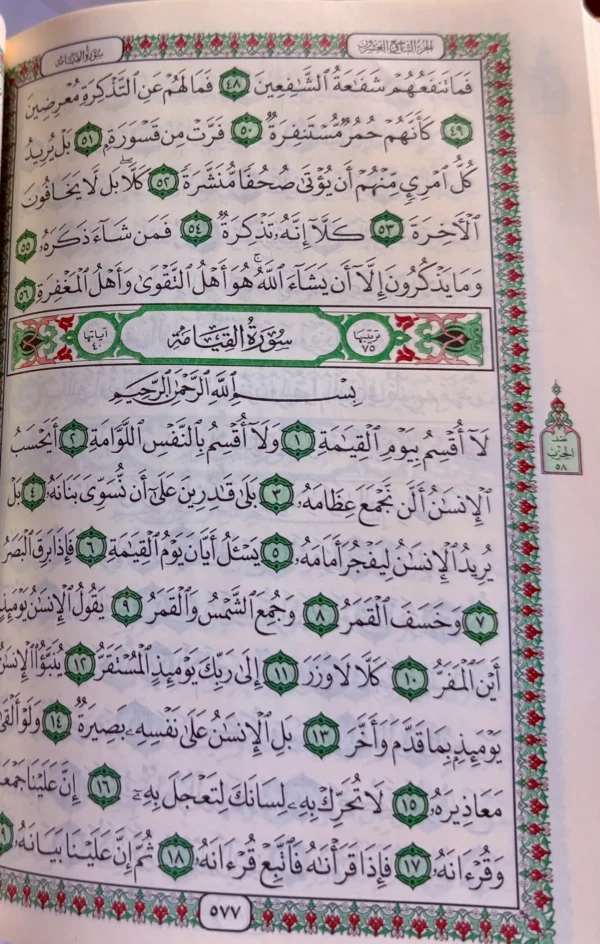 سورة القيامة
الجزء التاسع والعشرون
فَمَا تَنفَعُهُمْ شَفَٰعَةُ ٱلشَّٰفِعِينَ ٤٨ فَمَا لَهُمْ عَنِ ٱلتَّذْكِرَةِ مُعْرِضِينَ
٤٩ كَأَنَّهُمْ حُمُرٌ مُّسْتَنفِرَةٌ ٥٠ فَرَّتْ مِن قَسْوَرَةٍۭ ٥١ بَلْ يُرِيدُ
كُلُّ ٱمْرِئٍ مِّنْهُمْ أَن يُؤْتَىٰ صُحُفًا مُّنَشَّرَةً ٥٢ كَلَّاۖ بَل لَّا يَخَافُونَ
ٱلْءَاخِرَةَ ٥٣ كَلَّآ إِنَّهُۥ تَذْكِرَةٌ ٥٤ فَمَن شَآءَ ذَكَرَهُۥ ٥٥
وَمَا يَذْكُرُونَ إِلَّآ أَن يَشَآءَ ٱللَّهُۚ هُوَ أَهْلُ ٱلتَّقْوَىٰ وَأَهْلُ ٱلْمَغْفِرَةِ ٥٦
ترتيبها ٧٥ سُورَةُ القِيَامَةِ آياتها ٤٠
بِسْمِ ٱللَّهِ ٱلرَّحْمَٰنِ ٱلرَّحِيمِ
لَآ أُقْسِمُ بِيَوْمِ ٱلْقِيَٰمَةِ ١ وَلَآ أُقْسِمُ بِٱلنَّفْسِ ٱللَّوَّامَةِ ٢ أَيَحْسَبُ
ٱلْإِنسَٰنُ أَلَّن نَّجْمَعَ عِظَامَهُۥ ٣ بَلَىٰ قَٰدِرِينَ عَلَىٰٓ أَن نُّسَوِّىَ بَنَانَهُۥ ٤ بَلْ
يُرِيدُ ٱلْإِنسَٰنُ لِيَفْجُرَ أَمَامَهُۥ ٥ يَسْـَٔلُ أَيَّانَ يَوْمُ ٱلْقِيَٰمَةِ ٦ فَإِذَا بَرِقَ ٱلْبَصَرُ
٧ وَخَسَفَ ٱلْقَمَرُ ٨ وَجُمِعَ ٱلشَّمْسُ وَٱلْقَمَرُ ٩ يَقُولُ ٱلْإِنسَٰنُ يَوْمَئِذٍ
أَيْنَ ٱلْمَفَرُّ ١٠ كَلَّا لَا وَزَرَ ١١ إِلَىٰ رَبِّكَ يَوْمَئِذٍ ٱلْمُسْتَقَرُّ ١٢ يُنَبَّؤُا۟ ٱلْإِنسَٰنُ
يَوْمَئِذٍۭ بِمَا قَدَّمَ وَأَخَّرَ ١٣ بَلِ ٱلْإِنسَٰنُ عَلَىٰ نَفْسِهِۦ بَصِيرَةٌ ١٤ وَلَوْ أَلْقَىٰ
مَعَاذِيرَهُۥ ١٥ لَا تُحَرِّكْ بِهِۦ لِسَانَكَ لِتَعْجَلَ بِهِۦٓ ١٦ إِنَّ عَلَيْنَا جَمْعَهُ
وَقُرْءَانَهُۥ ١٧ فَإِذَا قَرَأْنَٰهُ فَٱتَّبِعْ قُرْءَانَهُۥ ١٨ ثُمَّ إِنَّ عَلَيْنَا بَيَانَهُۥ ١٩
نصف
الحزب
٥٨
٥٧٧